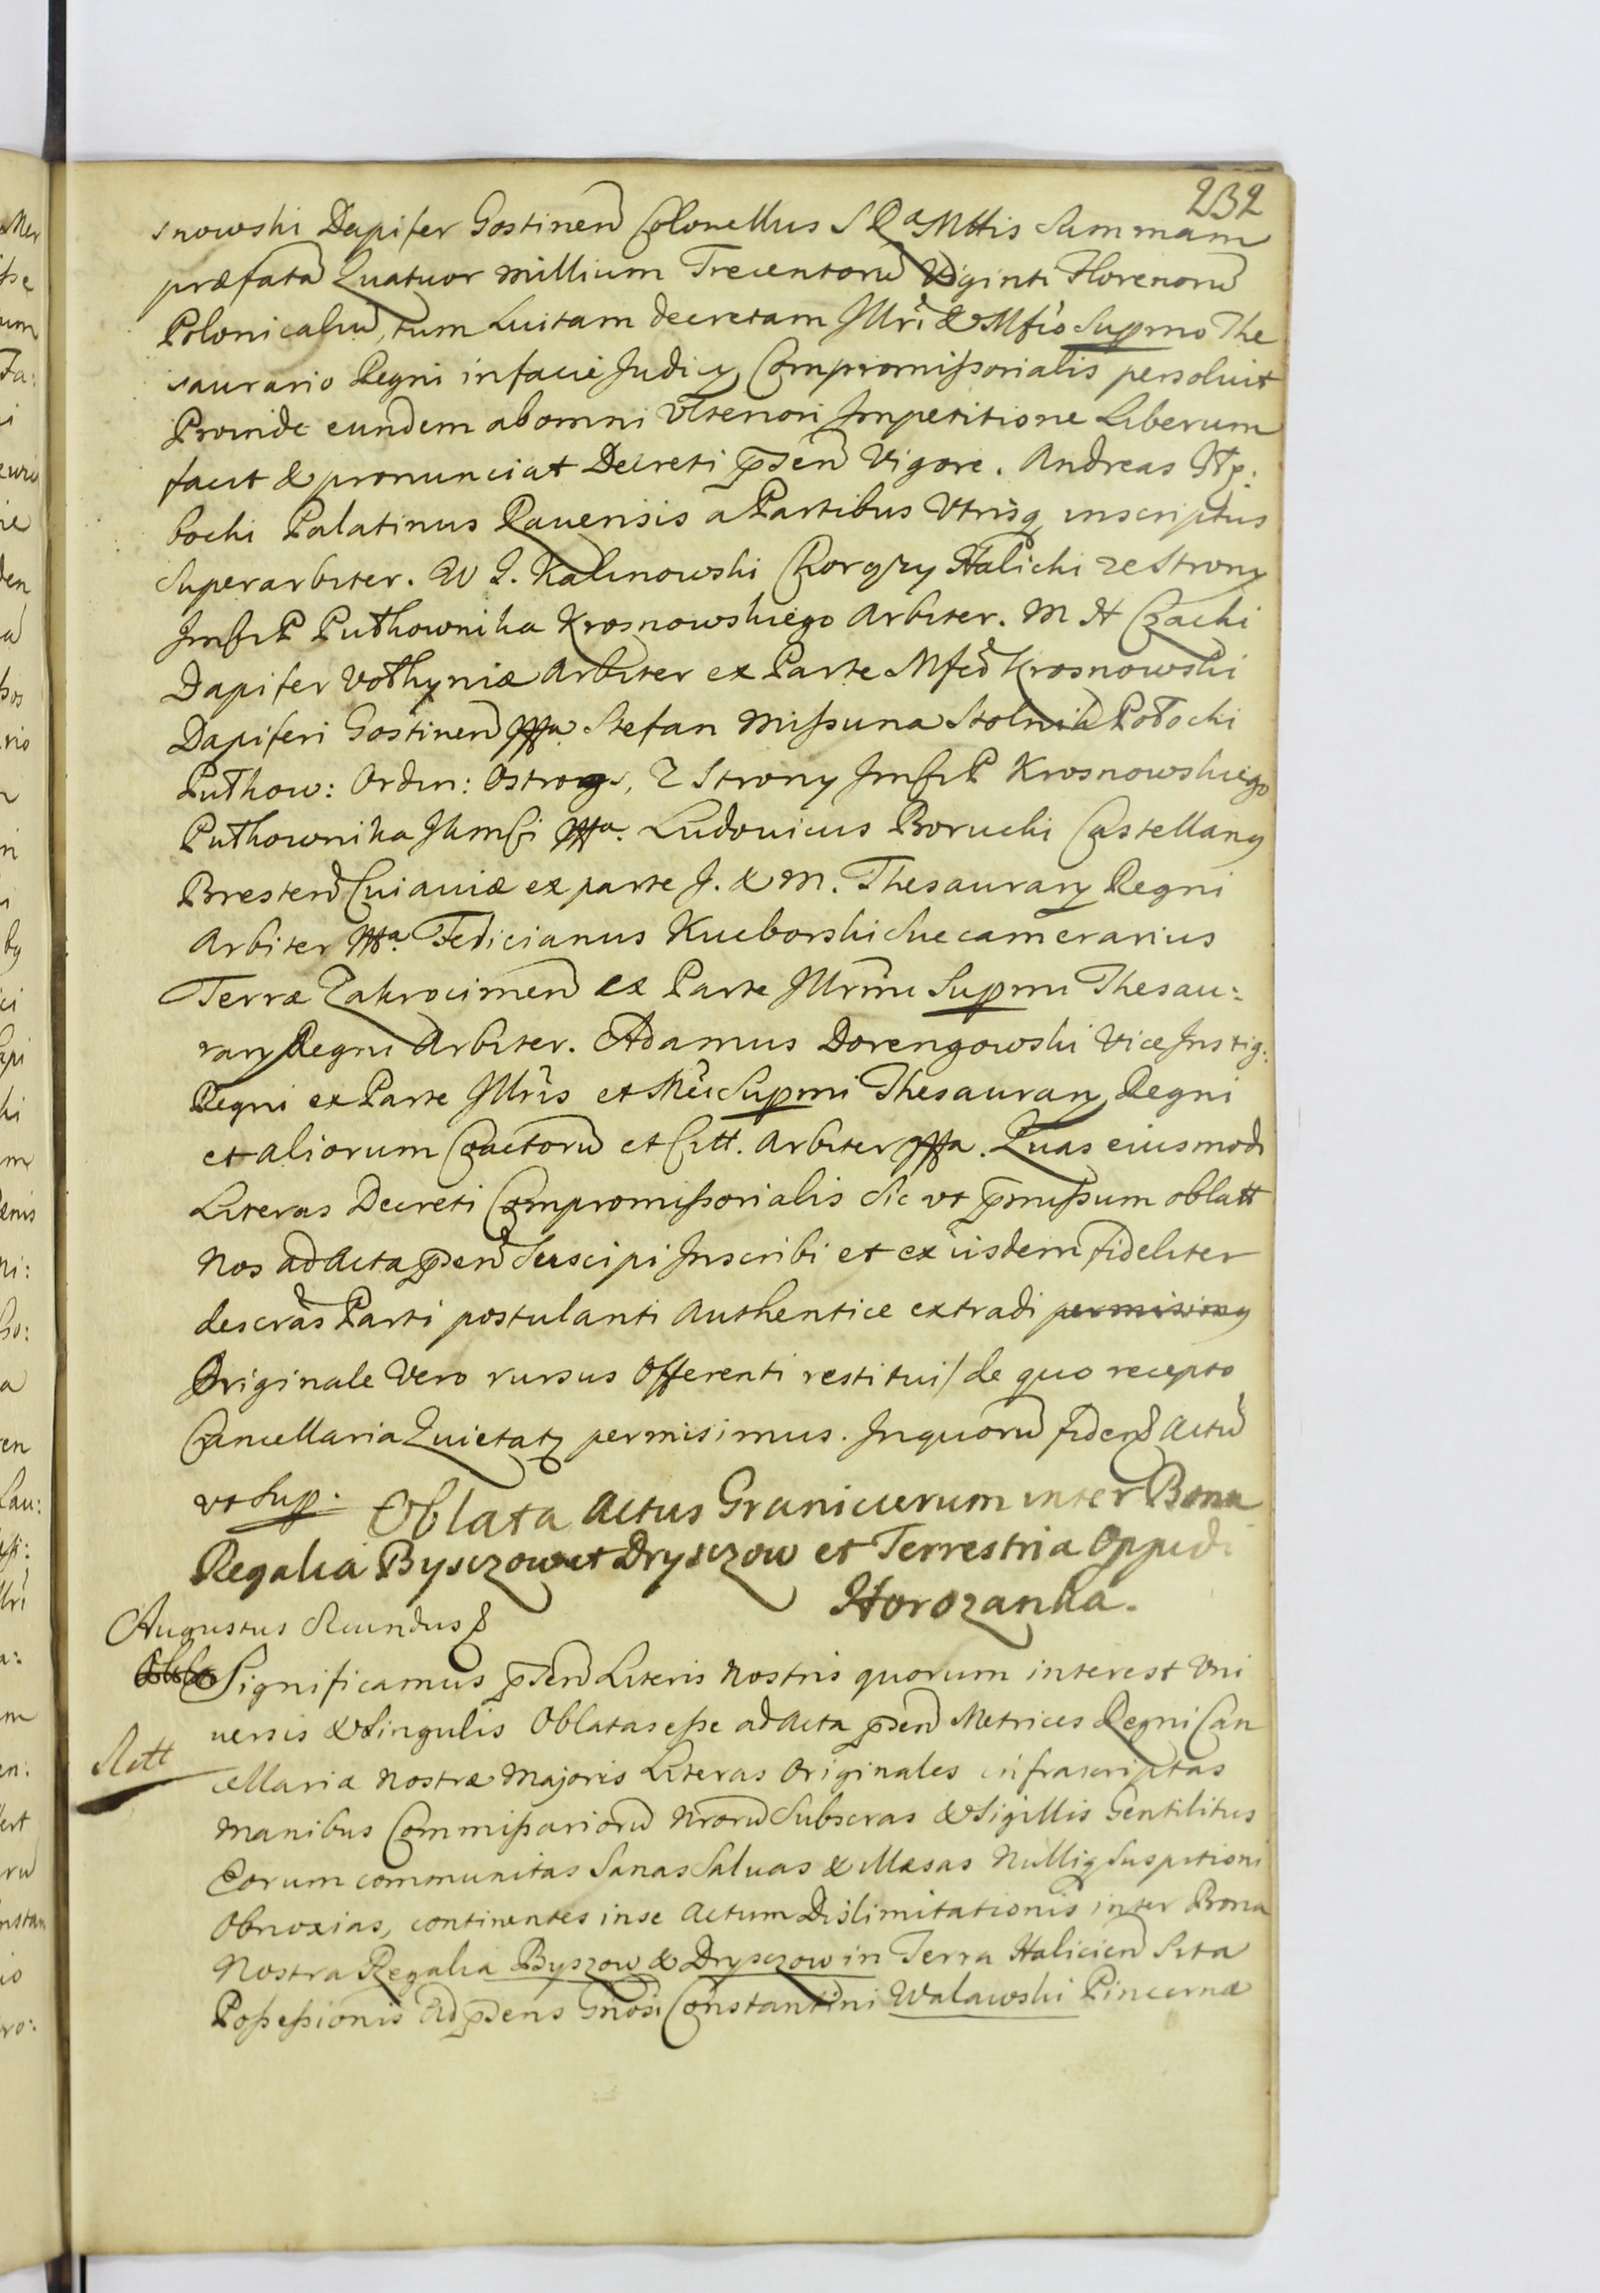 232
snowski Dapifer Gostinen Colonellus S R Mttis Summam
præfata Quatuor millium Trecentoru Viginti Florenoru
Polonicaliu, tum Luitam decretam Illri & Mfico Supmo The
saurario Regni in facie Judicy Compromissorialis persoluit
Proinde eundem ab omni Vlteriori Impetitione Liberum
facit & pronunciat Decreti pñsen Vigore. Andreas
Palatinus Rauensis a Partibus Vtrisq inscriptus
Superarbiter. W J. Kalinowski Chorąży Halicki ze Strony
Jmści P Pułkownika Krosnowskiego Arbiter. M H Czacki
Dapifer Vołhyniæ Arbiter ex Parte Mfci Krosnowski
Dapiferi Gostinen mppa Stefan Missuna Stolnik Połocki
Pułkow: Ordin: Ostrogs, Z Strony Jmści P Krosnowskiego
Pułkownika JKmści mppa. Ludouicus Borucki Castellang
Bresten Cuiauiæ ex parte J. & M. Thesaurary Regni
Arbiter mppa. Felicianus Kucborski Succamerarius
Terræ Zakrocimen ex Parte Illrmi Supmi Thesau:
rary Regni Arbiter. Adamus Dorengowski Vice Instig:
Regni ex Parte Illris et Mci Supmi Thesaurary Regni
et aliorum Coactoru et Citt. Arbiter mppa. Quas eiusmodi
Literas Decreti Compromissorialis sic vt pmissum oblatt
Nos ad Acta psen Suscipi Inscribi et ex iisdem fideliter
descras Parti postulanti Authentice extradi permisimg
Originale Vero rursus Offerenti restitui/ de quo recepto
Cancellaria Quietatg permisimus. In quoru fidem Actu
vt sup. Oblata Actus Granicierum inter Bona
Regalia Bysczow et Drysczow et Terrestria Oppidi
Horozanka.
Augustus Secundus
Significamus psen Literis Nostris quorum interest Vni
uersis & Singulis Oblatas esse ad Acta psen Metrices Regni Can
cellariæ Nostræ Majoris Literas Originales infrascriptas
Manibus Commissarioru Nroru Subscras & Sigillis Gentilitus
Eorum communitas Sanas Saluas & illæsas Nulliq Suspitioni
Obnoxias, continentes in se Actum Dislimitationis inter Bona
Nostra Regalia Byszow & Drysczow in Terra Halicien Sita
Possessionis Ad psens Gnosi Constantini Walawski Pincernæ